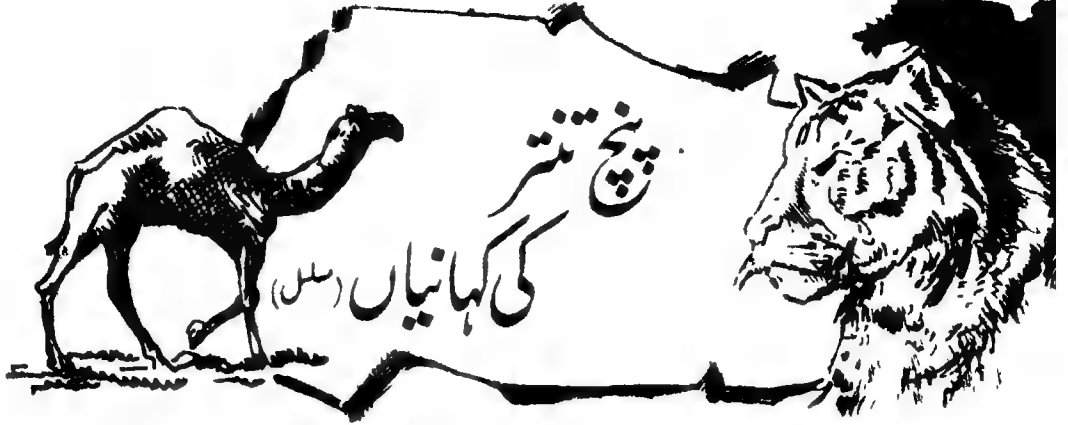 پنچ تنتر
کی کہانیاں (مسلسل)